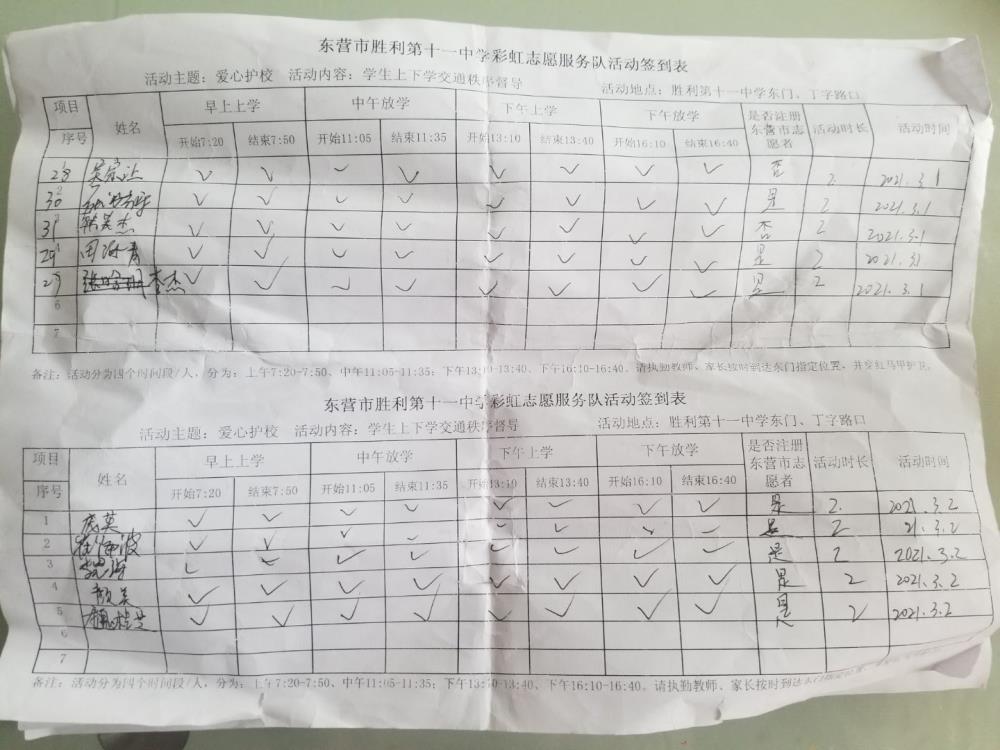 东营市胜利第十一中学彩虹志愿服务队活动签到表
活动主题：爱心护校 活动内容：学生上下学交通秩序督导 活动地点：胜利第十一中学东门、丁字路口
项目 序号 姓名 早上上学 中午放学 下午上学 下午放学 是否注册东营市志愿者 活动时长 活动时间
开始7:20 结束7:50 开始11:05 结束11:35 开始13:10 结束13:40 开始16:10 结束16:40
28 ✓ ✓ ✓ ✓ ✓ ✓ ✓ ✓ 否 2 2021.3.1
30 ✓ ✓ ✓ ✓ ✓ ✓ ✓ ✓ 是 2 2021.3.1
31 ✓ ✓ ✓ ✓ ✓ ✓ ✓ ✓ 否 2 2021.3.1
29 ✓ ✓ ✓ ✓ ✓ ✓ ✓ ✓ 是 2 2021.3.1
27 李杰 ✓ ✓ ✓ ✓ ✓ ✓ ✓ ✓ 是 2 2021.3.1
6
7
备注：活动分为四个时间段/人，分为：上午7:20-7:50、中午11:05-11:35；下午13:10-13:40、下午16:10-16:40。请执勤教师、家长按时到达东门指定位置，并穿红马甲
东营市胜利第十一中学彩虹志愿服务队活动签到表
活动主题：爱心护校 活动内容：学生上下学交通秩序督导 活动地点：胜利第十一中学东门、丁字路口
项目 序号 姓名 早上上学 中午放学 下午上学 下午放学 是否注册东营市志愿者 活动时长 活动时间
开始7:20 结束7:50 开始11:05 结束11:35 开始13:10 结束13:40 开始16:10 结束16:40
1 ✓ ✓ ✓ ✓ ✓ ✓ ✓ ✓ 是 2 2021.3.2
2 ✓ ✓ ✓ ✓ ✓ ✓ ✓ 是 2 21.3.2
3 ✓ ✓ ✓ ✓ ✓ ✓ ✓ ✓ 是 2 2021.3.2
4 ✓ ✓ ✓ ✓ ✓ ✓ ✓ ✓ 是 2 2021.3.2
5 ✓ ✓ ✓ ✓ ✓ ✓ ✓ ✓ 是 2 2021.3.2
6
7
备注：活动分为四个时间段/人，分为：上午7:20-7:50、中午11:05-11:35；下午13:10-13:40、下午16:10-16:40。请执勤教师、家长按时到达东门指定位置